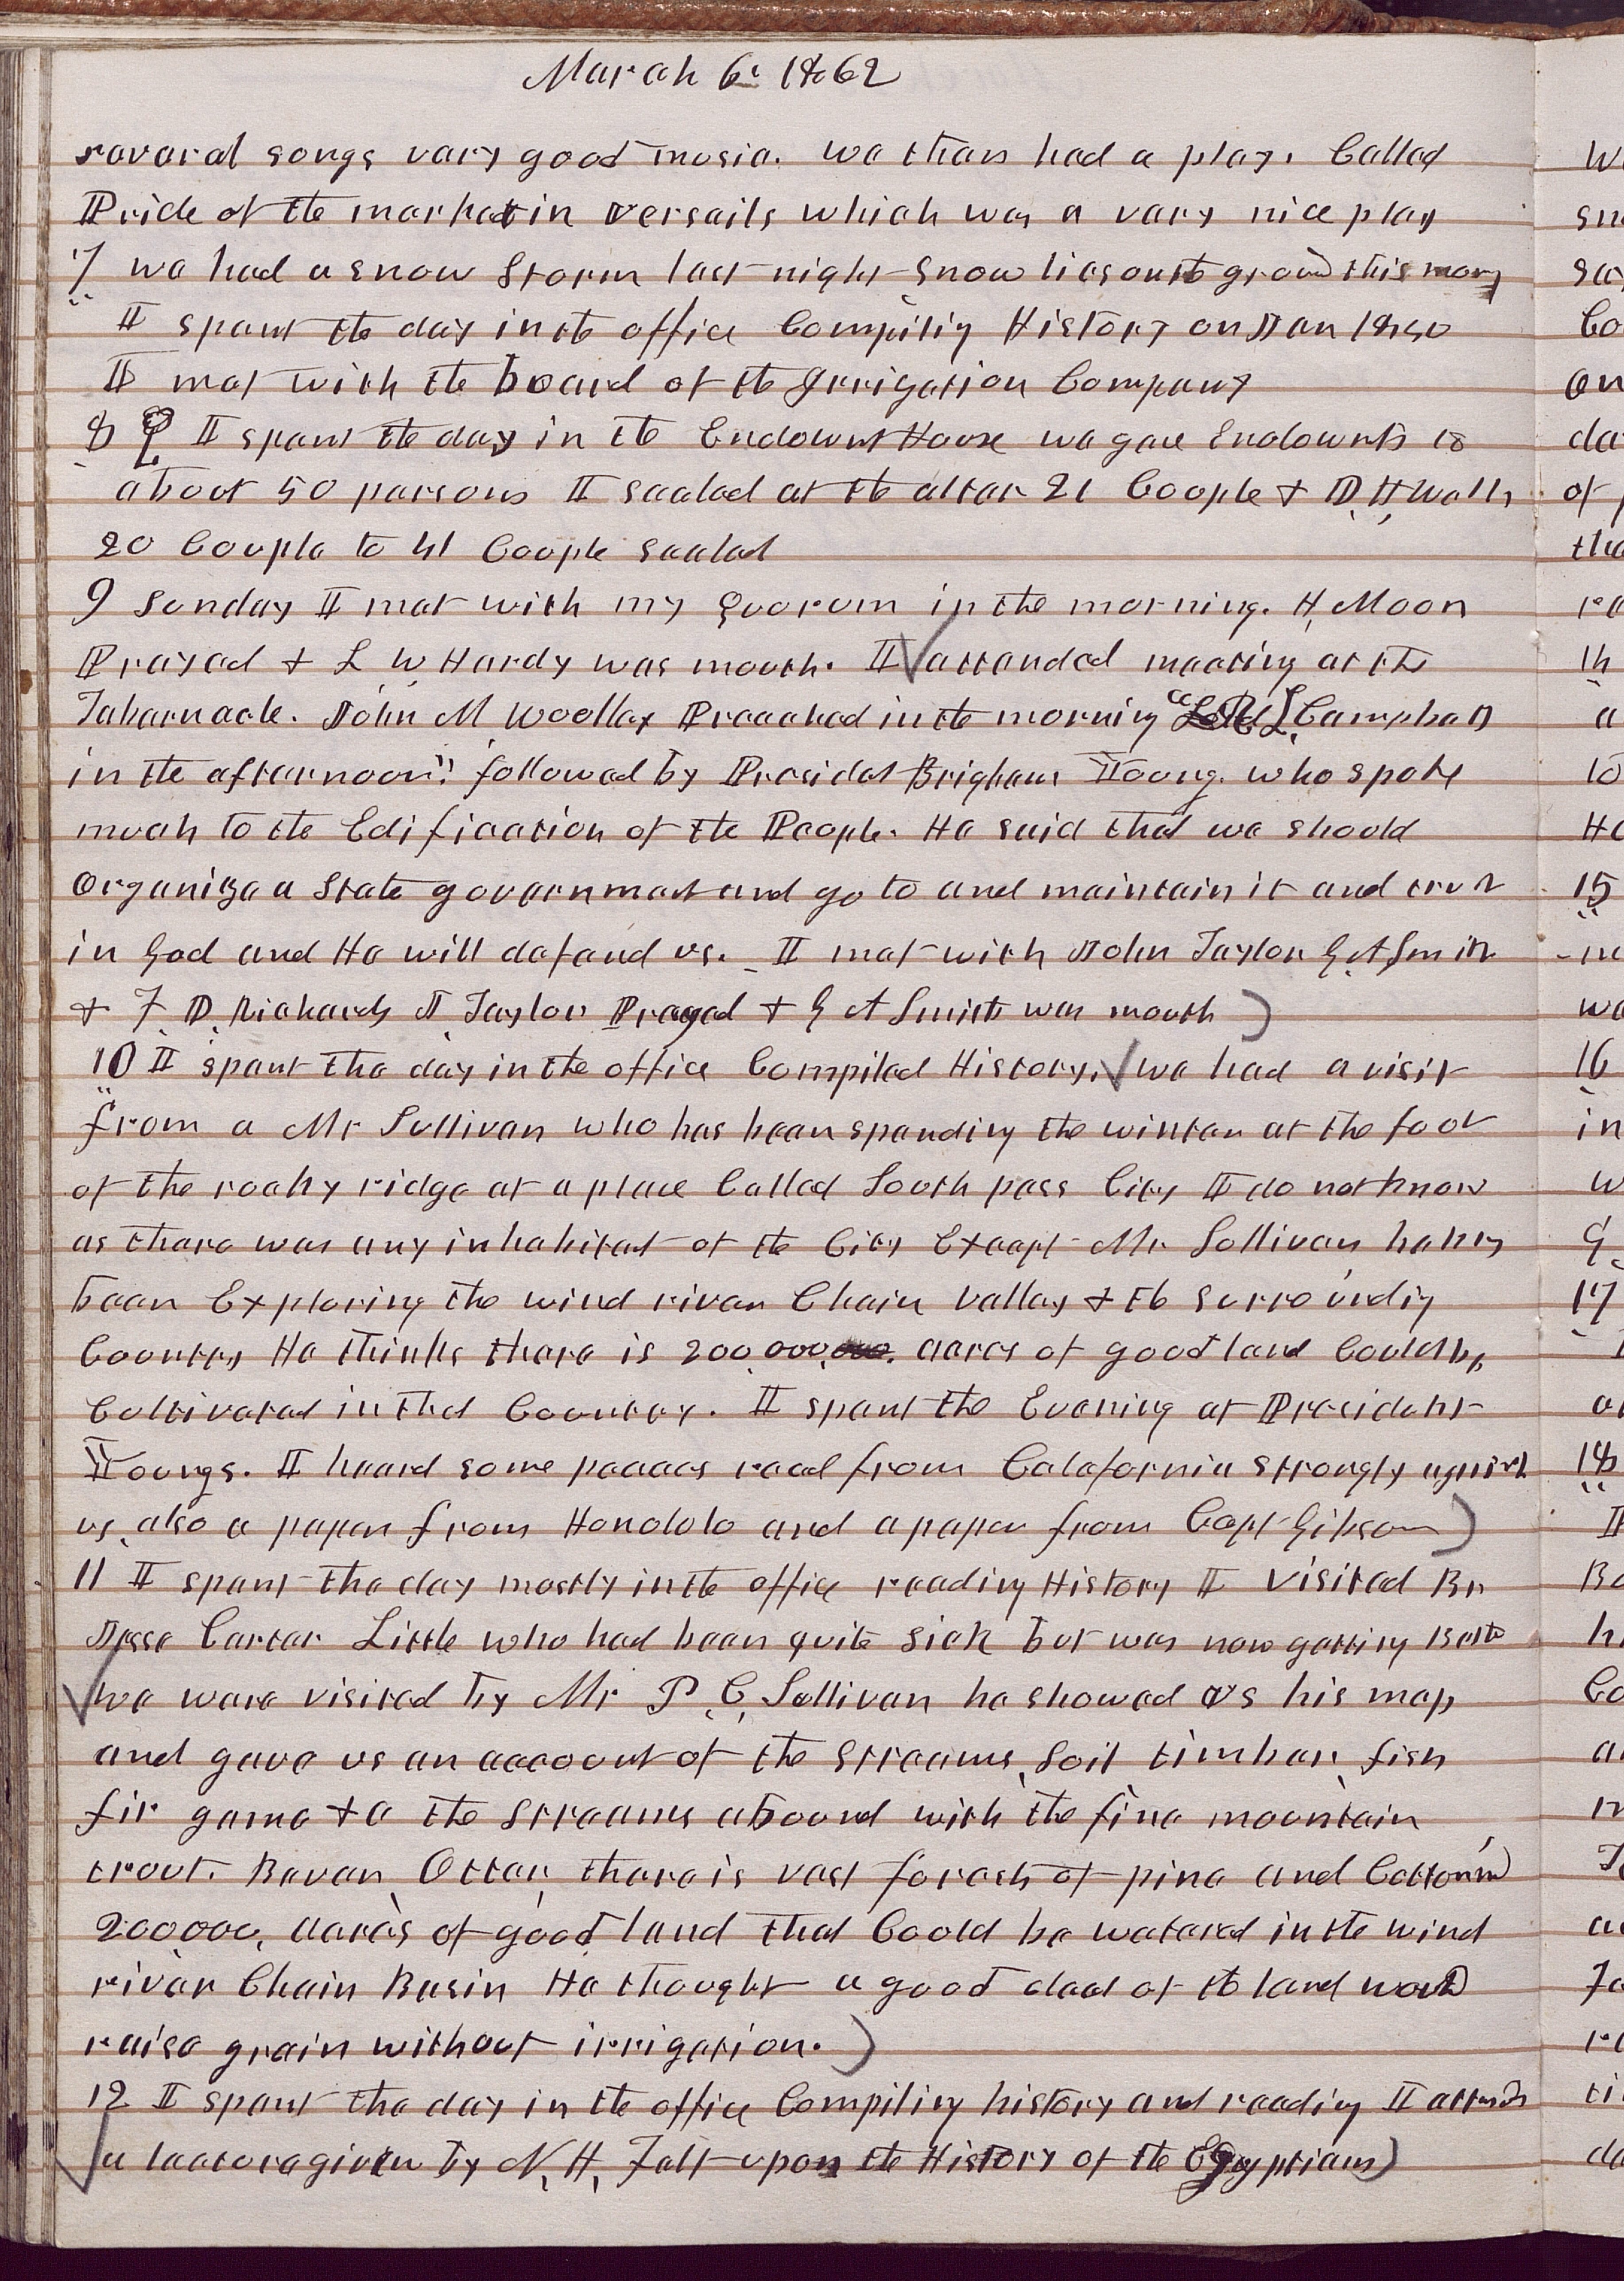 March 6. 1862
several songs vary good music. we than had a play. Called
Pride of the market in versails which was a vary nice play
7 we had a snow Storm last night Snow lies on the ground this morng
I spent the day in the office Compiling History on Jan 1850
I met with the board of the Irrigation Company
8 I spent the day in the Endowmt House we gave Endowmts to
about 50 persons I sealed at the altar 21 Couple & D. H, Wells
20 Couple to 41 Couple sealed
9 Sunday I met with my Quorum in the morning. H, Moon
Prayed & L W Hardy was mouth. I attended meeting at the
Tabernacle. John M Woolley Preached in the morning R L, Campbell
in the afternoon" followed by Presidet Brigham Young. who spoke
much to the Edification of the People. He said that we should
organize a State government and go to and maintain it and trust
in God and He will defend us. I met with John Taylor G A Smith
& F D Richards J Taylor Prayed & G A Smith was mouth)
10 I spent the day in the office Compiled History. we had a visit
from a Mr Sullivan who has been spending the winter at the foot
of the rocky ridge at a place Called South pass City I do not know
as there was any inhabitat of the City Except Mr Sullivan having
been Exploring the wind river Chain valley & the surrounding
Country He thinks there is 200,000 acres of good land Could be
Cultivated in that Country. I spent the Evening at Presidents
Youngs. I heard some peaces read from Calafornia strongly against
us, also a paper from Honolulo and a paper from Capt Gibson)
11 I spent the day mostly in the office reading History I visited Br
Jesse Carter Little who had been quite sick but was now getting Better
we were visited by Mr P, C, Sullivan he showed us his map
and gave us an account of the streams, Soil timber, fish
fir game & c the streams abound with the fine mountain
trout. Bever, Otter, there is vast forests of pine and Cottonwd
200,000, acres of good land that Could be watered in the wind
river Chain Basin He thought a good deal of the land would
raise grain without irrigation.)
12 I spent the day in the office Compiling history and reading I attended
a lecture given by N, H, Felt upon the History of the Egyptians)